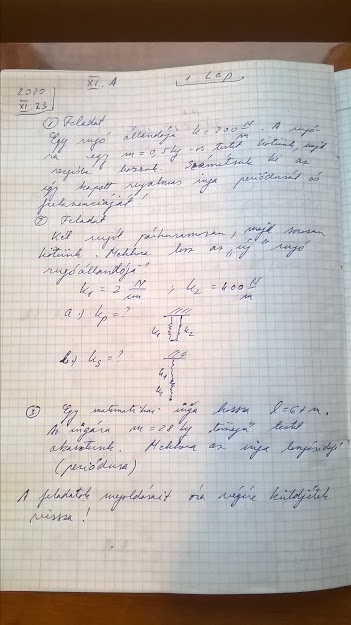 2020
XI.23
XI. A
1 Lap
① Feladat
Egy rugó állandója k = 200 N/m. A rugó-
ra egy m = 0,5 kg-os testet kötünk, majd
rezgésbe hozzuk. Számítsuk ki az
így kapott rugalmas inga periódusát és
frekvenciáját!
② Feladat
Két rugót párhuzamosan, majd sorosan
kötünk. Mekkora lesz az "új" rugó
rugóállandója?
k₁ = 2 N/cm ; k₂ = 400 N/m
a.) kp = ?
k₁ k₂
b.) ks = ?
k₁
k₂
③ Egy matematikai inga hossza l = 67 m.
Az ingára m = 28 kg tömegű testet
akasztunk. Mekkora az inga lengésideje
(periódusa)
A feladatok megoldásait óra végére küldjétek
vissza!